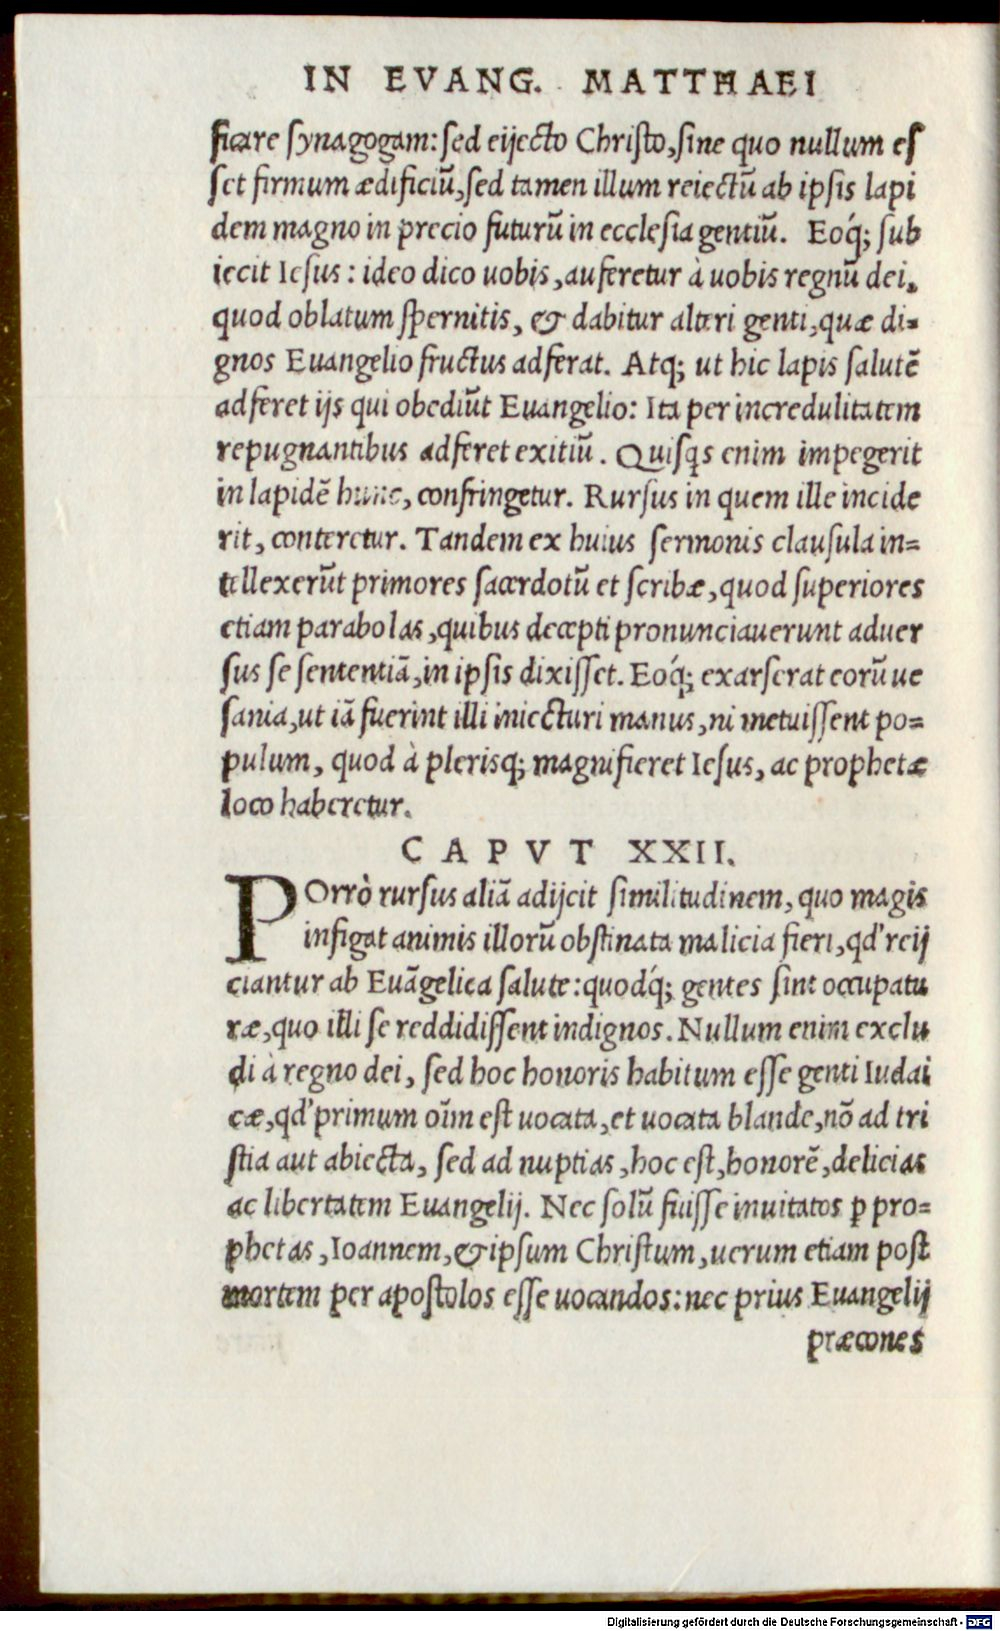 IN EVANG. MATTHAEI
ficare ſynagogam: ſed eijecto Chriſto, ſine quo nullum eſ
ſet firmum ædificiũ, ſed tamen illum reiectũ ab ipſis lapi
dem magno in precio futurũ in eccleſia gentiũ. Eoq́; ſub
iecit Ieſus: ideo dico uobis, auferetur à uobis regnũ dei,
quod oblatum ſpernitis, & dabitur alteri genti, quæ di-
gnos Euangelio fructus adferat. Atq; ut hic lapis ſalutẽ
adferet ijs qui obediũt Euangelio: Ita per incredulitatem
repugnantibus adferet exitiũ. Quiſq̃s enim impegerit
in lapidẽ hunc, confringetur. Rurſus in quem ille incide
rit, conteretur. Tandem ex huius ſermonis clauſula in-
tellexerũt primores ſacerdotũ et ſcribæ, quod ſuperiores
etiam parabolas, quibus decepti pronunciauerunt aduer
ſus ſe ſententiã, in ipſis dixiſſet. Eoq́; exarſerat eorũ ue
ſania, ut iã fuerint illi iniecturi manus, ni metuiſſent po-
pulum, quod à plerisq; magnifieret Ieſus, ac prophetæ
loco haberetur.
CAPVT XXII.
POrrò rurſus aliã adijcit ſimilitudinem, quo magis
infigat animis illorũ obſtinata malicia fieri, qd' reij
ciantur ab Euãgelica ſalute: quodq́; gentes ſint occupatu
ræ, quo illi ſe reddidiſſent indignos. Nullum enim exclu
di à regno dei, ſed hoc honoris habitum eſſe genti Iudai
cæ, qd' primum oĩm eſt uocata, et uocata blande, nõ ad tri
ſtia aut abiecta, ſed ad nuptias, hoc eſt, honorẽ, delicias
ac libertatem Euangelij. Nec ſolũ fuiſſe inuitatos ꝑ pro-
phetas, Ioannem, & ipſum Chriſtum, uerum etiam poſt
mortem per apoſtolos eſſe uocandos: nec prius Euangelij
præcones
Digitalisierung gefördert durch die Deutsche Forschungsgemeinschaft - DFG